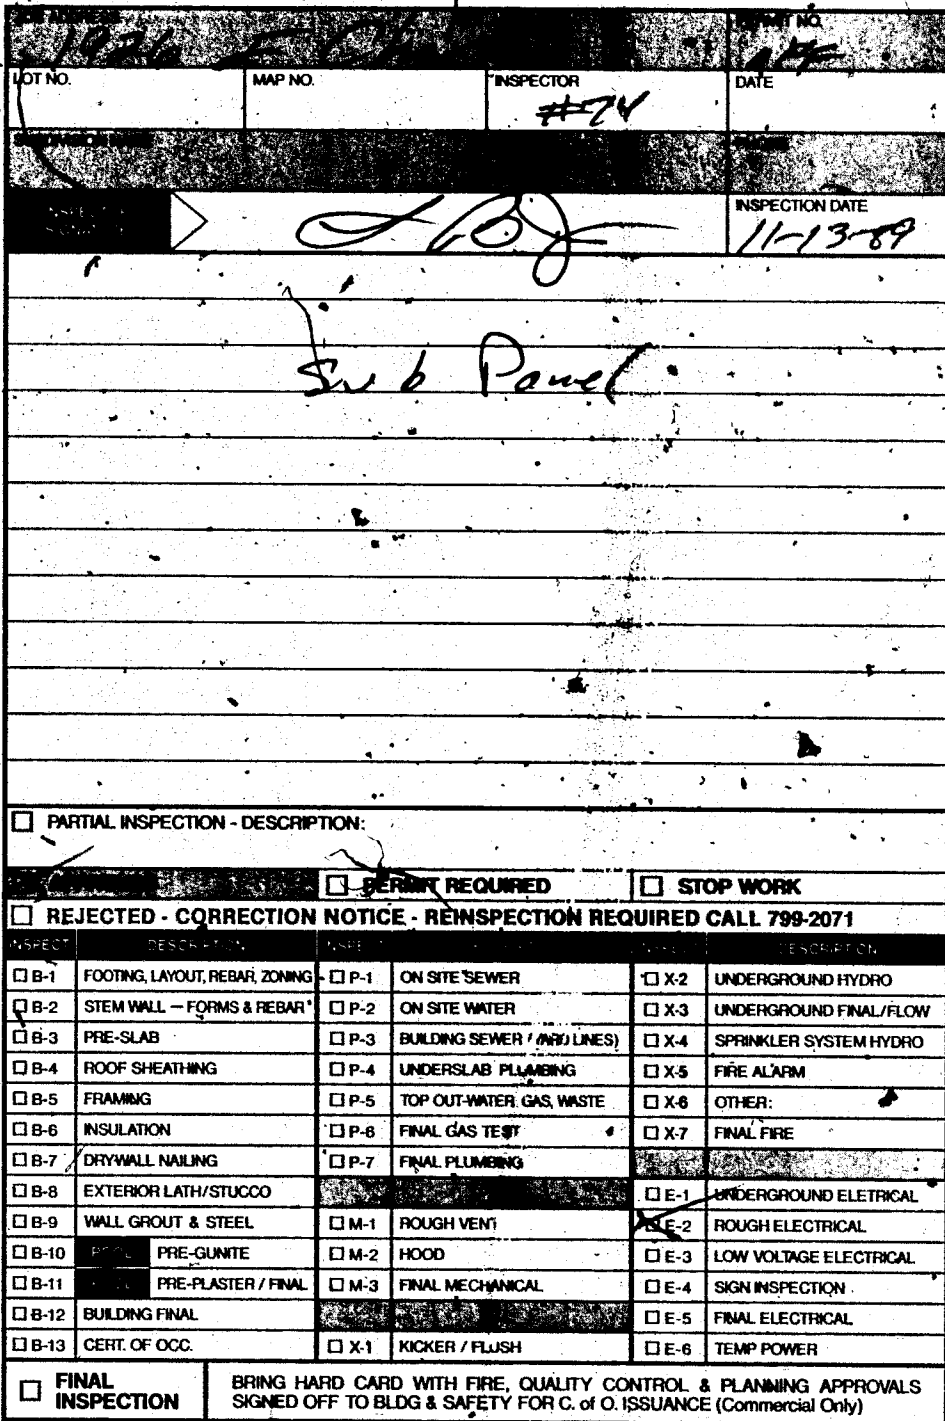 JOB ADDRESS PERMIT NO.
1926
LOT NO. MAP NO. INSPECTOR DATE
#74
INSPECTOR SIGNATURE INSPECTION DATE
11-13-89
Sub Panel
☐ PARTIAL INSPECTION - DESCRIPTION:
☐ PERMIT REQUIRED ☐ STOP WORK
☐ REJECTED - CORRECTION NOTICE - REINSPECTION REQUIRED CALL 799-2071
INSPECT DESCRIPTION INSPECT DESCRIPTION
☐ B-1 FOOTING, LAYOUT, REBAR, ZONING ☐ P-1 ON SITE SEWER ☐ X-2 UNDERGROUND HYDRO
☐ B-2 STEM WALL — FORMS & REBAR ☐ P-2 ON SITE WATER ☐ X-3 UNDERGROUND FINAL/FLOW
☐ B-3 PRE-SLAB ☐ P-3 BUILDING SEWER / (YARD LINES) ☐ X-4 SPRINKLER SYSTEM HYDRO
☐ B-4 ROOF SHEATHING ☐ P-4 UNDERSLAB PLUMBING ☐ X-5 FIRE ALARM
☐ B-5 FRAMING ☐ P-5 TOP OUT-WATER, GAS, WASTE ☐ X-6 OTHER:
☐ B-6 INSULATION ☐ P-6 FINAL GAS TEST ☐ X-7 FINAL FIRE
☐ B-7 DRYWALL NAILING ☐ P-7 FINAL PLUMBING
☐ B-8 EXTERIOR LATH/STUCCO ☐ E-1 UNDERGROUND ELETRICAL
☐ B-9 WALL GROUT & STEEL ☐ M-1 ROUGH VENT ☒ E-2 ROUGH ELECTRICAL
☐ B-10 POOL PRE-GUNITE ☐ M-2 HOOD ☐ E-3 LOW VOLTAGE ELECTRICAL
☐ B-11 PRE-PLASTER / FINAL ☐ M-3 FINAL MECHANICAL ☐ E-4 SIGN INSPECTION
☐ B-12 BUILDING FINAL ☐ E-5 FINAL ELECTRICAL
☐ B-13 CERT. OF OCC. ☐ X-1 KICKER / FLUSH ☐ E-6 TEMP POWER
☐ FINAL INSPECTION BRING HARD CARD WITH FIRE, QUALITY CONTROL & PLANNING APPROVALS
SIGNED OFF TO BLDG & SAFETY FOR C. of O. ISSUANCE (Commercial Only)